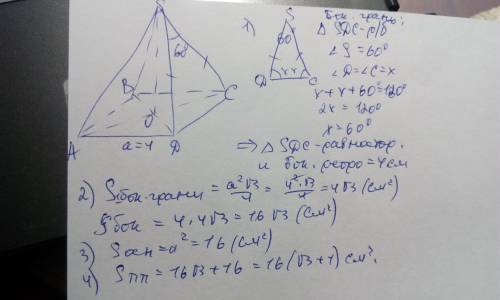 S
60°
B
C
O
A
D
a=4
1)
S
60°
D
x x
C
Бок. грань:
△ SDC-р/б
∠S=60°
∠D=∠C=x
x+x+60°=120°
2x=120°
x=60°
⇒ △ SDC-равностор.
и бок. ребро=4см
2) Sбок.грани = a²√3/4 = 4²·√3/4 = 4√3 (см²)
Sбок = 4·4√3 = 16√3 (см²)
3) Sосн = a² = 16 (см²)
4) Sпп = 16√3+16 = 16(√3+1) см².